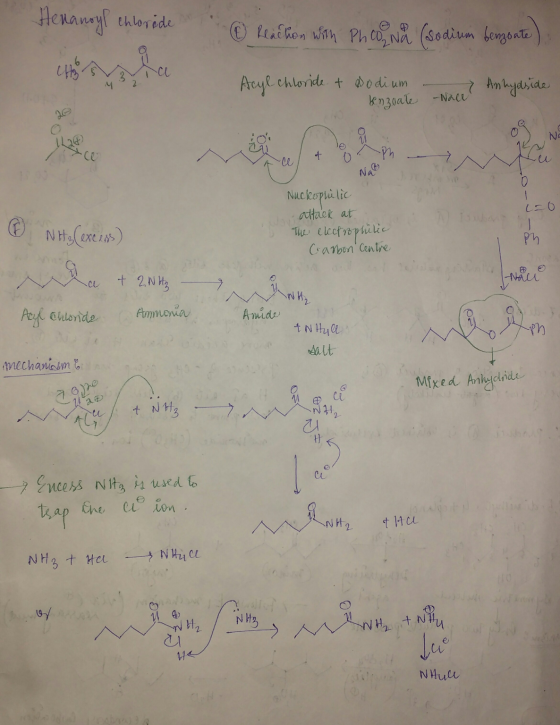 Hexanoyl chloride
CH3 6 5 4 3 2 1 O Cl
O Cl
(E) Reaction with PhCO2⊖Na⊕ (Sodium benzoate)
Acyl chloride + Sodium benzoate → Anhydride
-NaCl
O Cl + ⊖O O Ph → O⊖ Cl
Na⊕
O
C=O
Ph
Nucleophilic
attack at
the electrophilic
Carbon centre
-NaCl
O O O Ph
Mixed Anhydride
(F) NH3 (excess)
O Cl + 2NH3 → O NH2
+ NH4Cl
Acyl Chloride Ammonia Amide Salt
mechanism:
O Cl + NH3 → O NH2 Cl⊖
H
Cl⊖
O NH2 + HCl
→ Excess NH3 is used to
trap the Cl⊖ ion.
NH3 + HCl → NH4Cl
or
O NH2 H NH3 → O NH2 + NH4
Cl⊖
NH4Cl